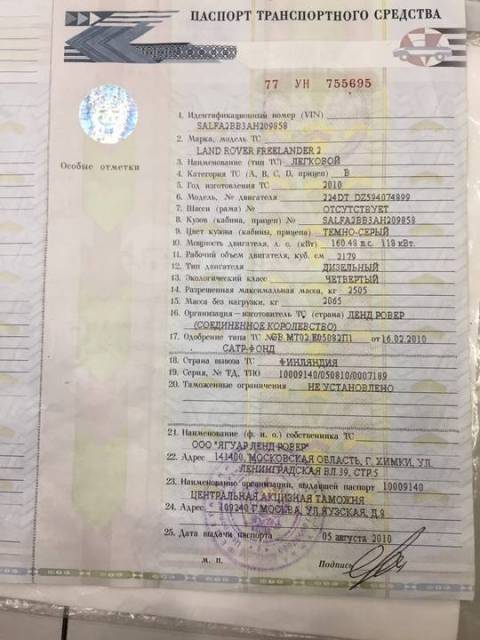 ПАСПОРТ ТРАНСПОРТНОГО СРЕДСТВА
77 УН 755695
Особые отметки
1. Идентификационный номер (VIN)
SALFA2BB3AH209858
2. Марка, модель ТС
LAND ROVER FREELANDER 2
3. Наименование (тип ТС) ЛЕГКОВОЙ
4. Категория ТС (A, B, C, D, прицеп) B
5. Год изготовления ТС 2010
6. Модель, № двигателя 224DT DZ594074899
7. Шасси (рама) № ОТСУТСТВУЕТ
8. Кузов (кабина, прицеп) № SALFA2BB3AH209858
9. Цвет кузова (кабины, прицепа) ТЕМНО-СЕРЫЙ
10. Мощность двигателя, л. с. (кВт) 160.48 л.с. 118 кВт.
11. Рабочий объем двигателя, куб. см 2179
12. Тип двигателя ДИЗЕЛЬНЫЙ
13. Экологический класс ЧЕТВЕРТЫЙ
14. Разрешенная максимальная масса, кг 2505
15. Масса без нагрузки, кг 2065
16. Организация – изготовитель ТС (страна) ЛЕНД РОВЕР
(СОЕДИНЕННОЕ КОРОЛЕВСТВО)
17. Одобрение типа ТС № GB.MT02.E05082П1 от 16.02.2010
САТР-ФОНД
18. Страна вывоза ТС ФИНЛЯНДИЯ
19. Серия, № ТД, ТПО 10009140/050810/0007189
20. Таможенные ограничения НЕ УСТАНОВЛЕНО
21. Наименование (ф. и. о.) собственника ТС
ООО "ЯГУАР ЛЕНД РОВЕР"
22. Адрес 141400, МОСКОВСКАЯ ОБЛАСТЬ, Г. ХИМКИ, УЛ.
ЛЕНИНГРАДСКАЯ ВЛ.39, СТР.5
23. Наименование организации, выдавшей паспорт 10009140
ЦЕНТРАЛЬНАЯ АКЦИЗНАЯ ТАМОЖНЯ
24. Адрес 109240 Г.МОСКВА, УЛ.ЯУЗСКАЯ, Д.8
25. Дата выдачи паспорта 05 августа 2010
М. П. Подпись